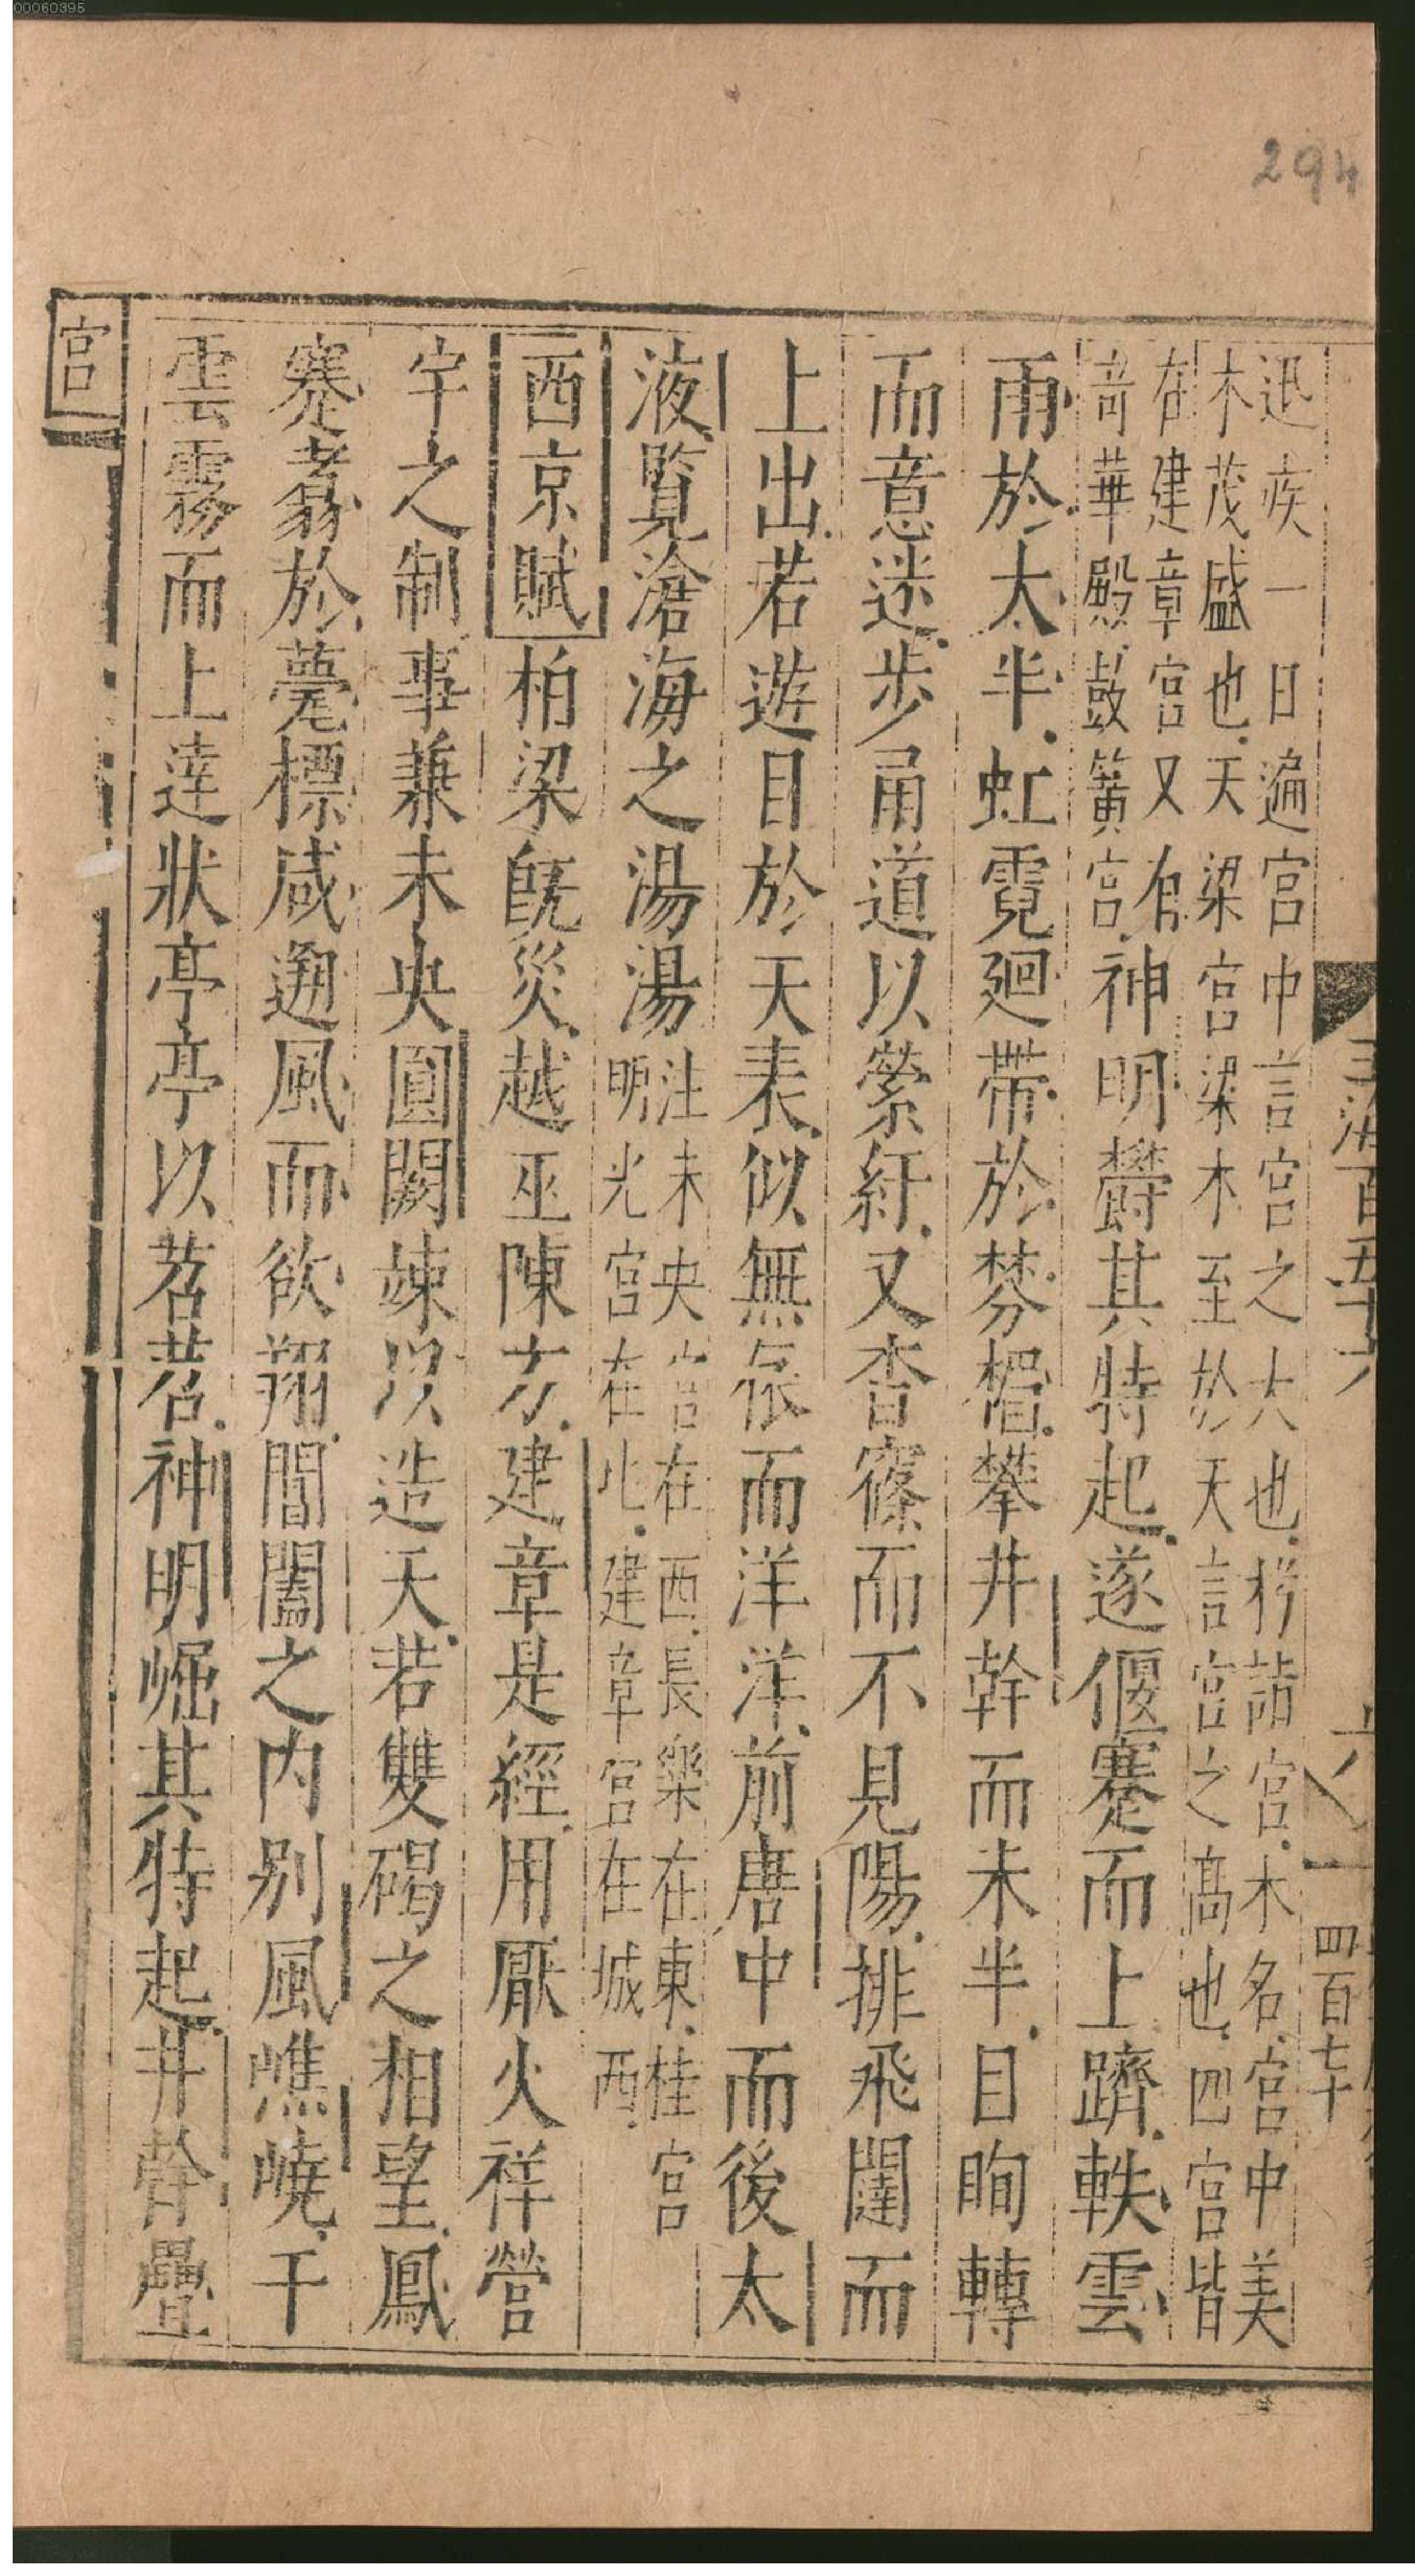 00060395
294
玉海百五十六
六
四百七十
迅疾一日遍宮中言宮之大也枍詣宮木名宮中美
木茂盛也天梁宮梁木至於天言宮之髙也四宮皆
在建章宮又有
竒華殿鼓簧宮
神明欝其特起遂偃蹇而上躋軼雲
雨於太半虹霓廻帶於棼楣攀井幹而未半目眴轉
而意迷步甬道以縈紆又杳窱而不見陽排飛闥而
上出若遊目於天表似無依而洋洋前唐中而後太
液覧滄海之湯湯
注未央宮在西長樂在東桂宮
明光宮在北建章宮在城西
西京賦柏梁旣災越巫陳方建章是經用厭火祥營
宇之制事兼未央圓闕竦以造天若雙碣之相望鳳
騫翥於甍標咸遡風而欲翔閶闔之内别風嶕嶢干
雲霧而上逹狀亭亭以苕苕神明崛其特起井幹疊
宮